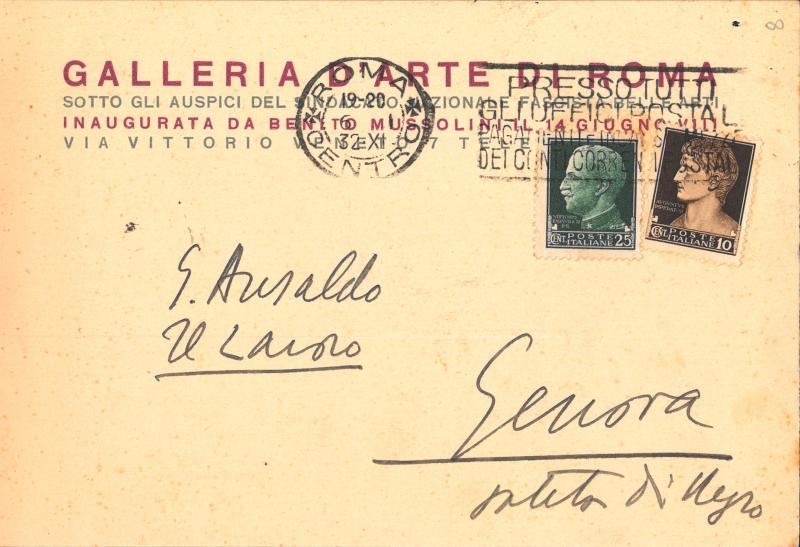 8
GALLERIA D'ARTE DI ROMA
SOTTO GLI AUSPICI DEL SINDACATO NAZIONALE FASCISTA BELLE ARTI
INAUGURATA DA BENITO MUSSOLINI IL 14 GIUGNO VIII
VIA VITTORIO VENETO 7
ROMA
19-20
6
32 XI
CENTRO
PRESSO TUTTI
GLI UFFICI POSTALI
PAGAMENTI
DEI CONTI CORRENTI POSTALI
VITTORIO
CENT POSTE ITALIANE 25
CENT POSTE ITALIANE 10
G. Ansaldo
Il Lavoro
Genova
di Negro